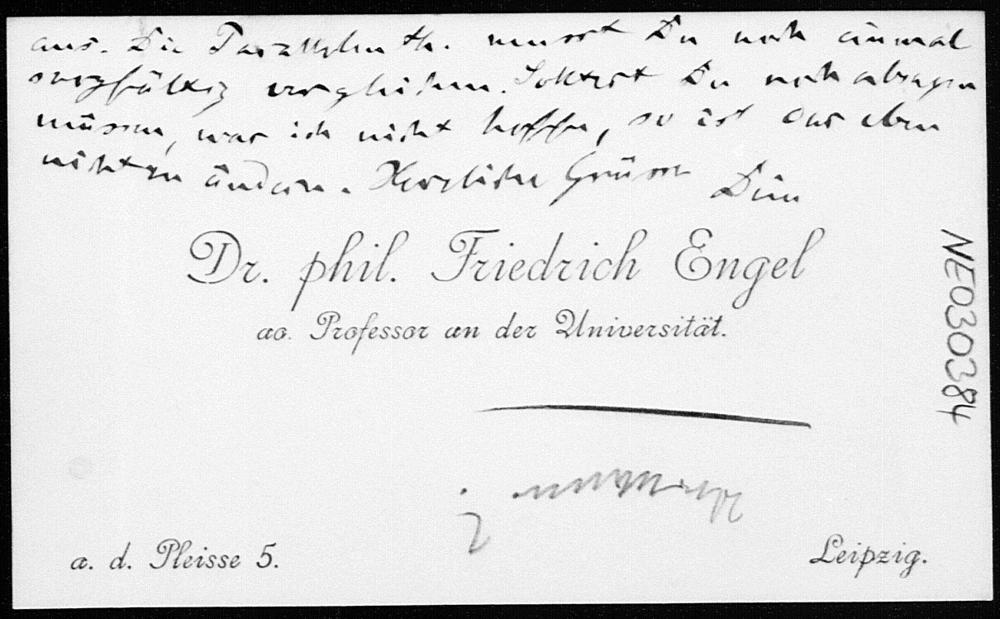 aus. Die Parallelenth. musst Du noch einmal
sorgfältig vergleichen. Solltest Du noch absagen
müssen, was ich nicht hoffe, so ist das eben
nicht zu ändern. Herzliche Grüsse Dein
Dr. phil. Friedrich Engel
ao. Professor an der Universität.
NE030384
a. d. Pleisse 5.
Leipzig.